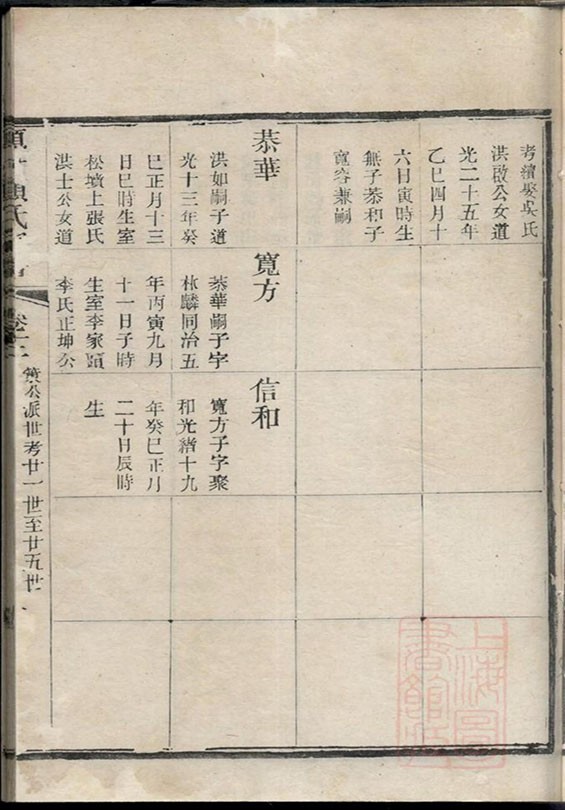 考續娶吳氏
洪啟公女道
光二十五年
乙巳四月十
六日寅時生
無子恭和子
寬容兼嗣
恭華
洪如嗣子道
光十三年癸
巳正月十三
日巳時生室
松墳上張氏
洪士公女道
寬方
恭華嗣子字
林麟同治五
年丙寅九月
十一日子時
生室李家頭
李氏正坤公
信和
寬方子字聚
和光緒十九
年癸巳正月
二十日辰時
生
公派世考廿一世至廿五世
上海圖書館藏